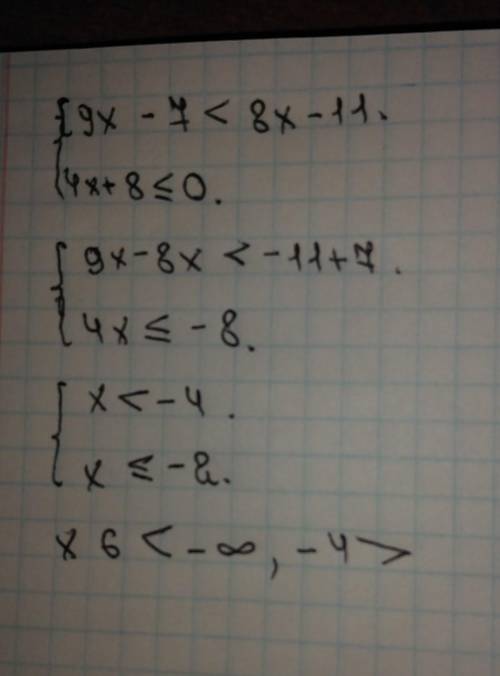 { 9x - 7 < 8x - 11.
4x + 8 ≤ 0.
{ 9x - 8x < -11 + 7.
4x ≤ -8.
{ x < -4.
x ≤ -2.
x ∈ < -∞, -4 >